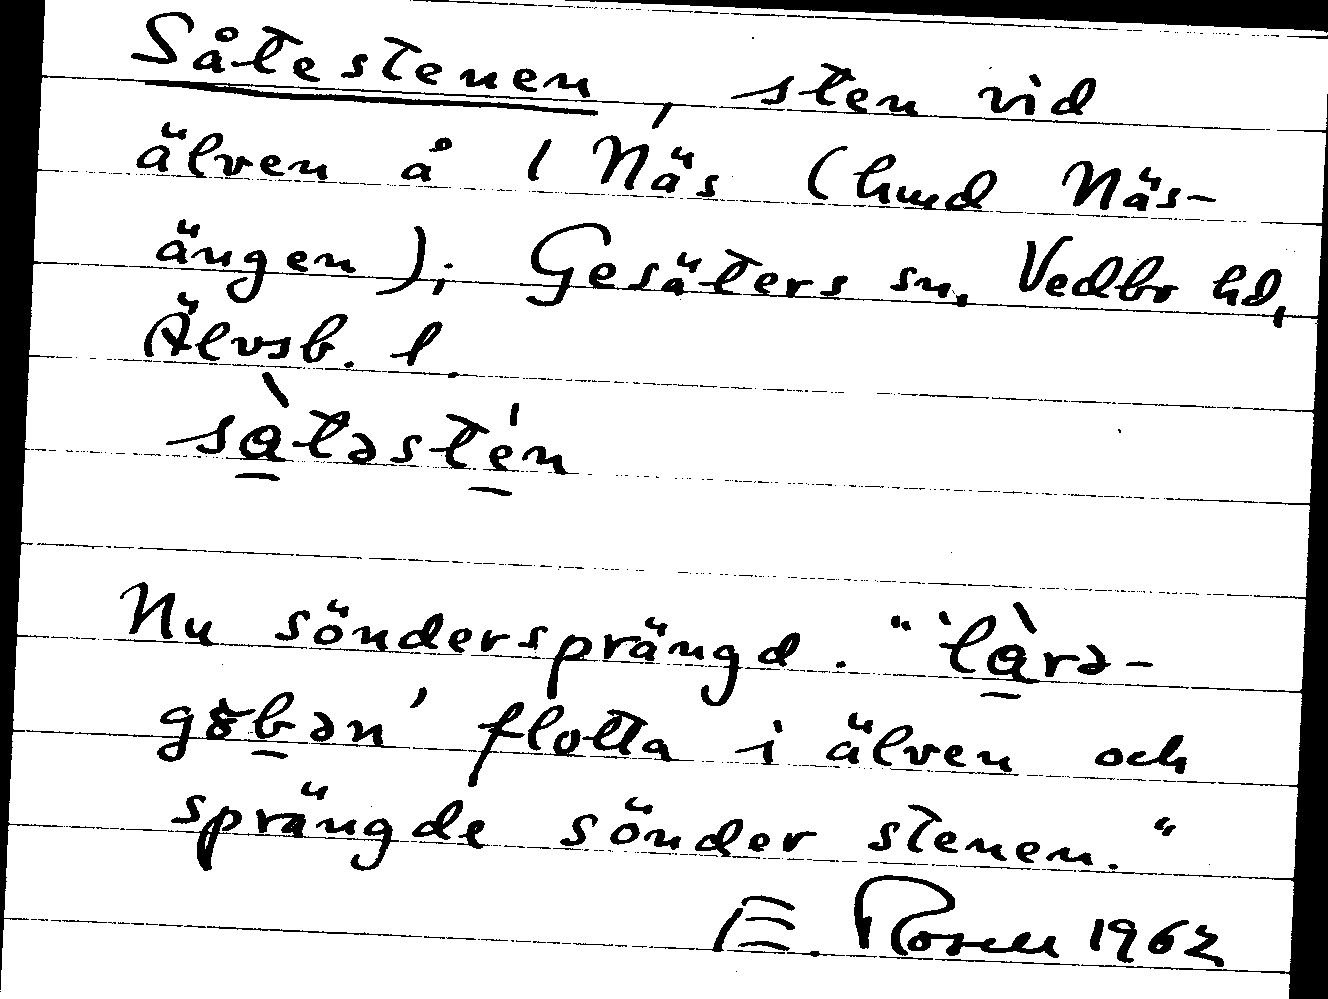 Såtestenen, sten vid
älven å 1 Näs (hmd Näs-
ängen); Gesäters sn, Vedbo hd,
Älvsb. l.
sàtəstén
Nu söndersprängd. "'làrə-
gɞbən' flotta i älven och
sprängde sönder stenen."
E. Rosell 1962